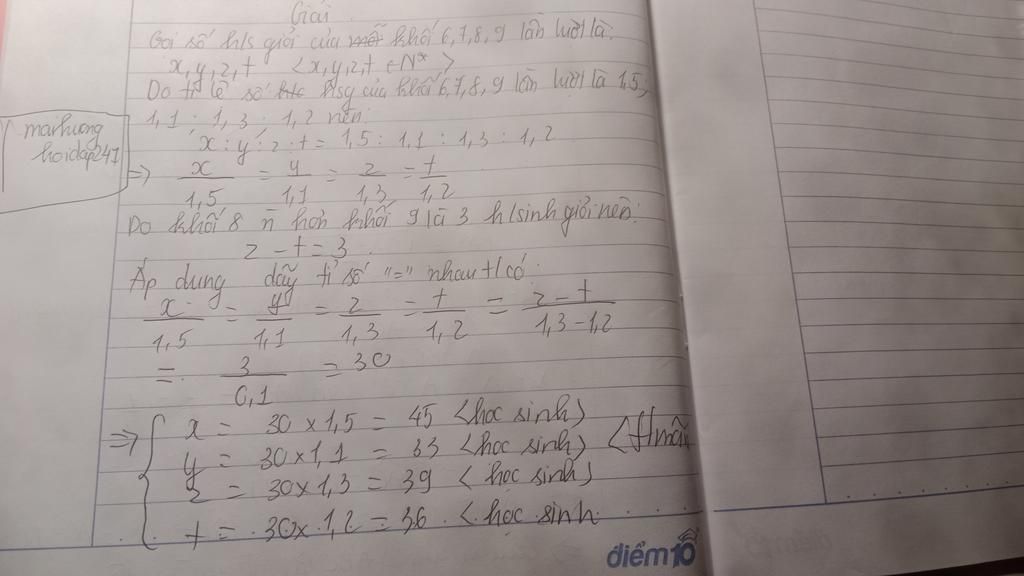 Giải
Gọi số h/s giỏi của khối 6,7,8,9 lần lượt là:
x,y,z,t <x,y,z,t ∈ N*>
Do tỉ lệ số hsg của khối 6,7,8,9 lần lượt là 1,5;
1,1 ; 1,3 ; 1,2 nên:
x : y : z : t = 1,5 : 1,1 : 1,3 : 1,2
marhuong
hoidap247
=> x/1,5 = y/1,1 = z/1,3 = t/1,2
Do khối 8 n hơn khối 9 là 3 h/sinh giỏi nên:
z - t = 3
Áp dụng dãy tỉ số "=" nhau t/có:
x/1,5 = y/1,1 = z/1,3 = t/1,2 = z - t/1,3 - 1,2
= 3/0,1 = 30
=> { x = 30 x 1,5 = 45 <học sinh>
y = 30 x 1,1 = 33 <học sinh> <t/mãn
z = 30 x 1,3 = 39 <học sinh>
t = 30 x 1,2 = 36 <học sinh
điểm 10